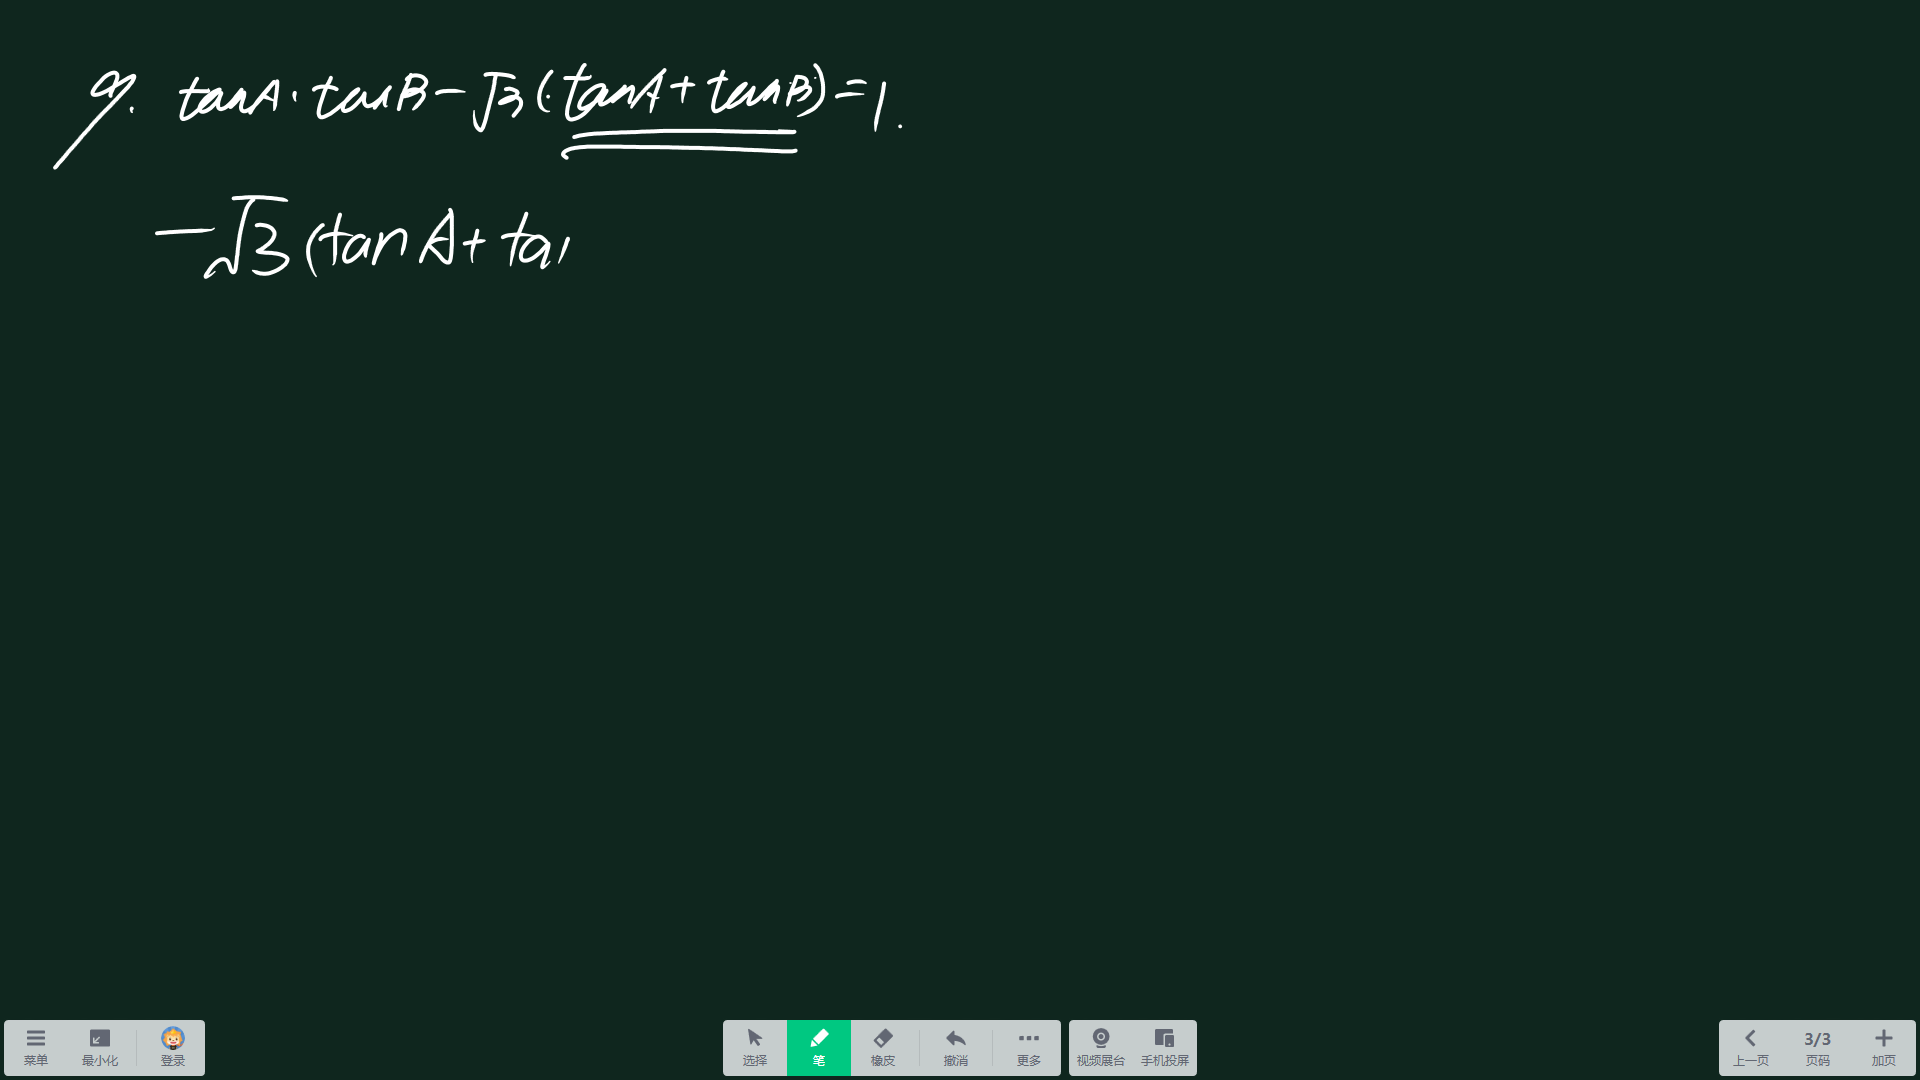 9. tanA·tanB-√3(tanA+tanB)=1.
-√3(tanA+ta
菜单 最小化 登录 选择 笔 橡皮 撤消 更多 视频展台 手机投屏 上一页 3/3 页码 加页